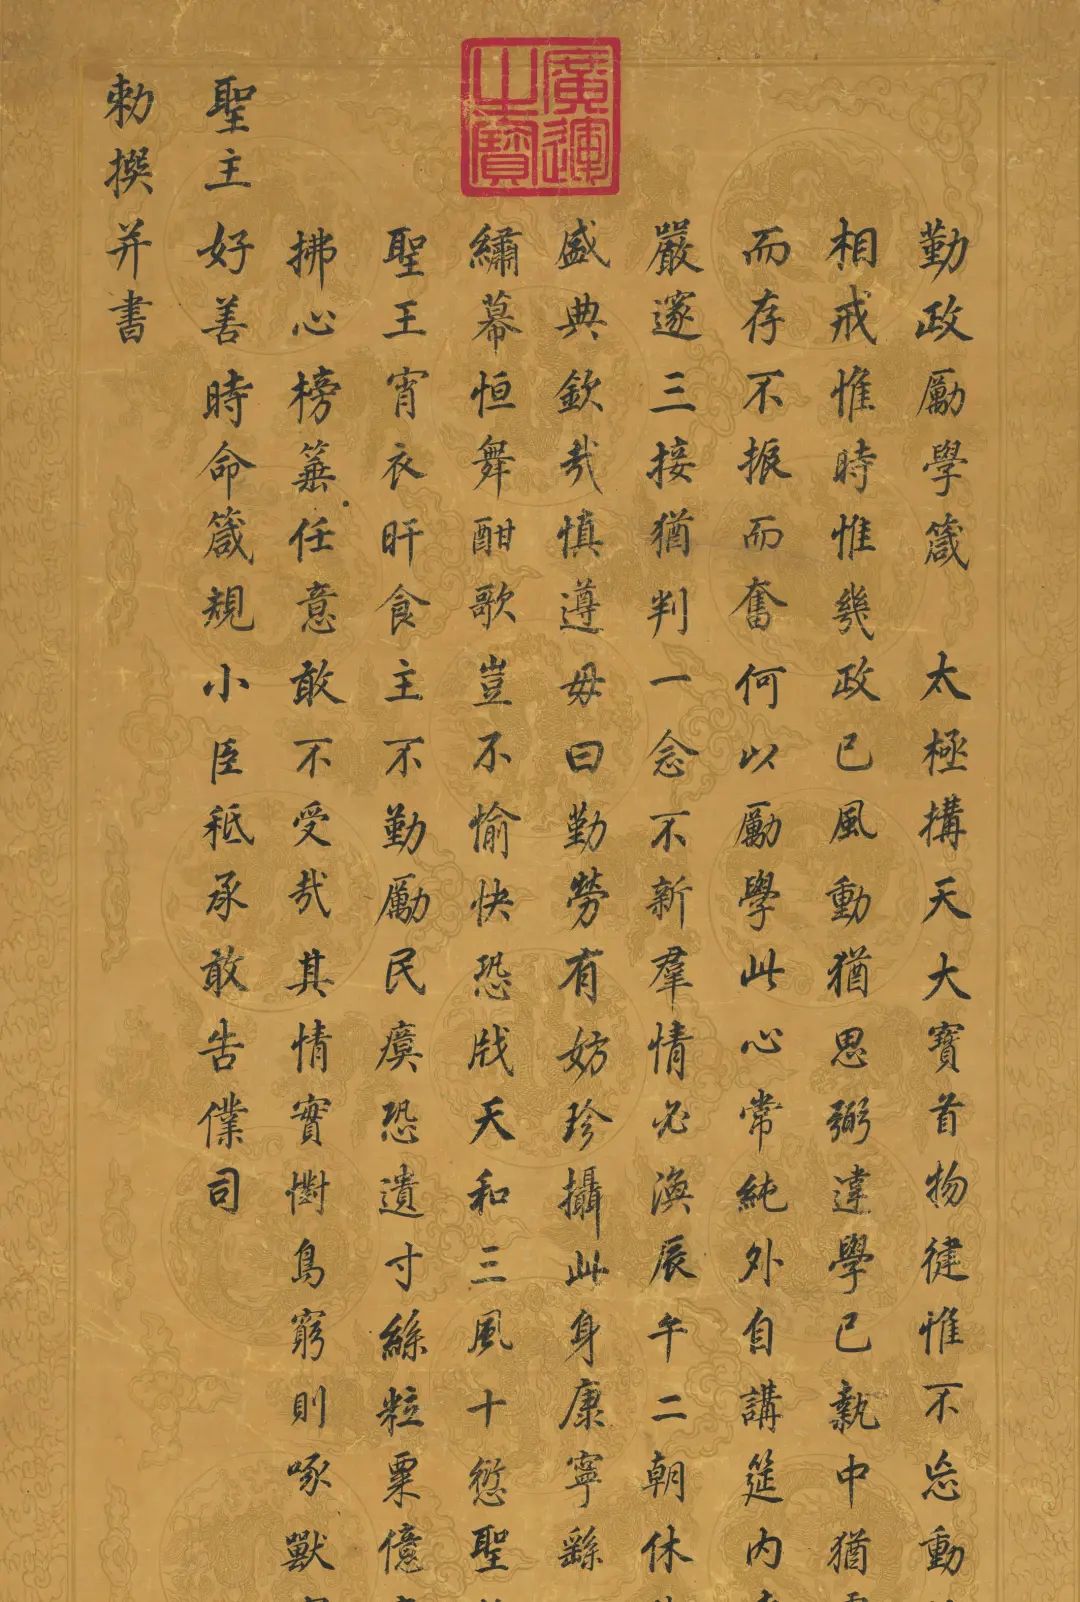 廣運之寶
勤政勵學箴 太極構天大寶首物健惟不忘動
相戒惟時惟幾政已風動猶思弼違學已執中猶
而存不振而奮何以勵學此心常純外自講筵内
嚴邃三接猶判一念不新羣情必渙辰午二朝休
盛典欽哉慎遵毋曰勤勞有妨珍攝此身康寧繇
繡幕恒舞酣歌豈不愉快恐戕天和三風十愆聖
聖王宵衣旰食主不勤勵民瘼恐遺寸絲粒粟億
拂心榜箠任意敢不受哉其情實懟鳥窮則啄獸
聖主好善時命箴規小臣秪承敢告僕司
勅撰并書